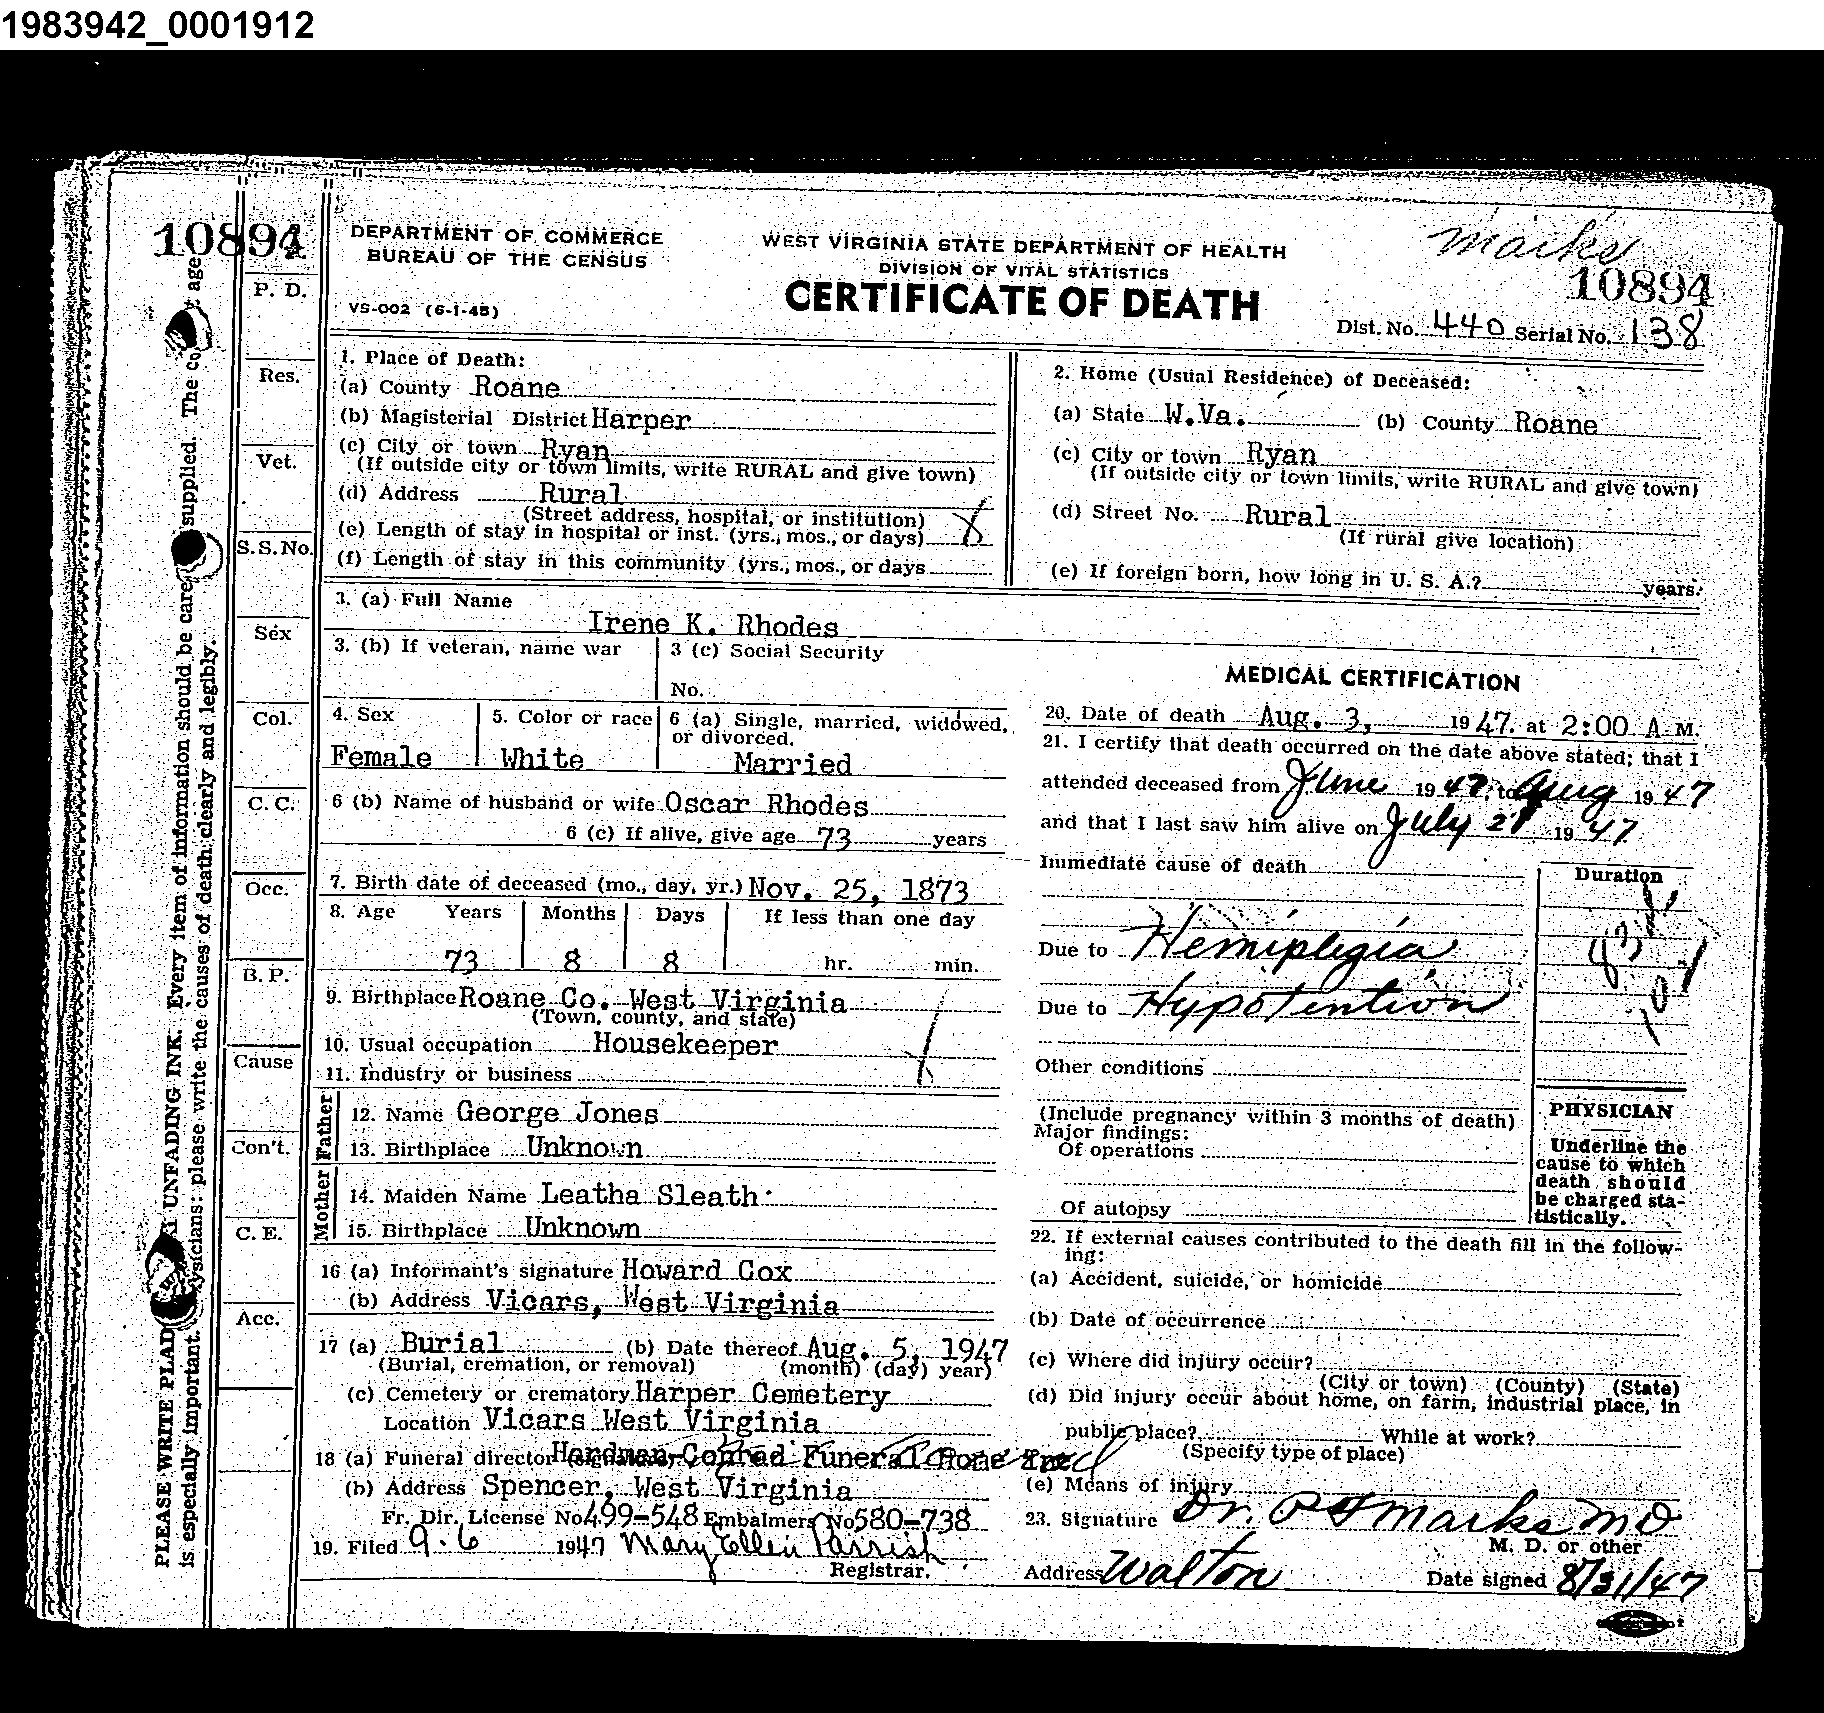 1983942_0001912
10894
DEPARTMENT OF COMMERCE
BUREAU OF THE CENSUS
VS-002 (6-1-45)
WEST VIRGINIA STATE DEPARTMENT OF HEALTH
DIVISION OF VITAL STATISTICS
CERTIFICATE OF DEATH
Marks
10894
Dist. No. 440 Serial No. 138
P. D.
Res.
Vet.
S. S. No.
Sex
Col.
C. C.
Occ.
B. P.
Cause
Con't.
C. E.
Acc.
PLEASE WRITE UNFADING INK. Every item of information should be supplied. The age
is especially important. please write the causes of death clearly and legibly.
1. Place of Death:
(a) County Roane
(b) Magisterial District Harper
(c) City or town Ryan
(If outside city or town limits, write RURAL and give town)
(d) Address Rural
(Street address, hospital, or institution)
(e) Length of stay in hospital or inst. (yrs., mos., or days) X
(f) Length of stay in this community (yrs., mos., or days
2. Home (Usual Residence) of Deceased:
(a) State W.Va. (b) County Roane
(c) City or town Ryan
(If outside city or town limits, write RURAL and give town)
(d) Street No. Rural
(If rural give location)
(e) If foreign born, how long in U. S. A.? years.
3. (a) Full Name
Irene K. Rhodes
3. (b) If veteran, name war
3 (c) Social Security
No.
4. Sex
Female
5. Color or race
White
6 (a) Single, married, widowed,
or divorced.
Married
6 (b) Name of husband or wife Oscar Rhodes
6 (c) If alive, give age 73 years
7. Birth date of deceased (mo., day, yr.) Nov. 25, 1873
8. Age Years Months Days If less than one day
73 8 8 hr. min.
9. Birthplace Roane Co. West Virginia
(Town, county, and state)
10. Usual occupation Housekeeper
11. Industry or business
Father
12. Name George Jones
13. Birthplace Unknown
Mother
14. Maiden Name Leatha Sleath
15. Birthplace Unknown
16 (a) Informant's signature Howard Cox
(b) Address Vicars, West Virginia
17 (a) Burial (b) Date thereof Aug. 5, 1947
(Burial, cremation, or removal) (month) (day) year)
(c) Cemetery or crematory Harper Cemetery
Location Vicars West Virginia
18 (a) Funeral director Hardman-Conrad Funeral Home Inc
(b) Address Spencer, West Virginia
Fr. Dir. License No 499-548 Embalmers No 580-738
19. Filed 9-6 1947 Mary Ellen Parrish
Registrar.
MEDICAL CERTIFICATION
20. Date of death Aug. 3, 1947. at 2:00 A.M.
21. I certify that death occurred on the date above stated; that I
attended deceased from June 1947, to Aug 1947
and that I last saw him alive on July 27 1947
Immediate cause of death
Duration
Due to Hemiplegia
Due to Hypotention
Other conditions
(Include pregnancy within 3 months of death)
Major findings:
Of operations
Of autopsy
PHYSICIAN
Underline the
cause to which
death should
be charged sta-
tistically.
22. If external causes contributed to the death fill in the follow-
ing:
(a) Accident, suicide, or homicide
(b) Date of occurrence
(c) Where did injury occur?
(City or town) (County) (State)
(d) Did injury occur about home, on farm, industrial place, in
public place? While at work?
(Specify type of place)
(e) Means of injury
23. Signature Dr. Marks MD
M. D. or other
Address Walton Date signed 8/31/47